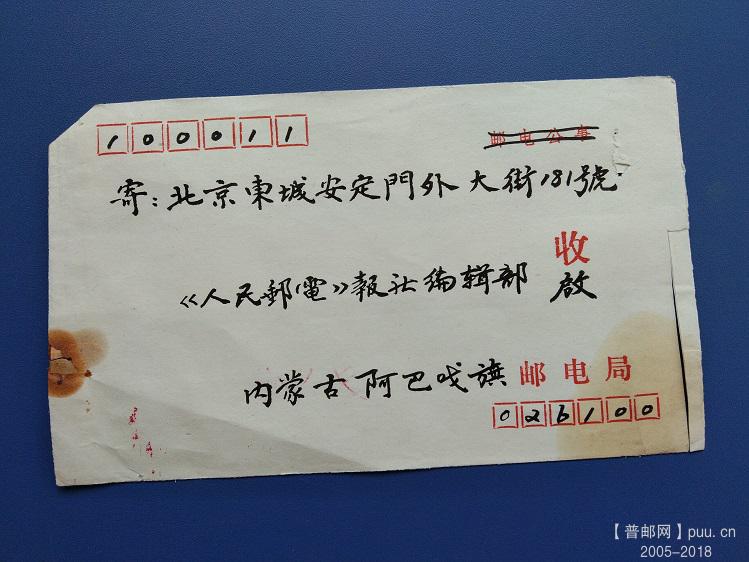 100011
邮电公事
寄:北京東城安定門外大街181號
收
《人民郵電》報社编辑部 啟
内蒙古阿巴戈旗 邮电局
026100
【普邮网】puu.cn
2005-2018